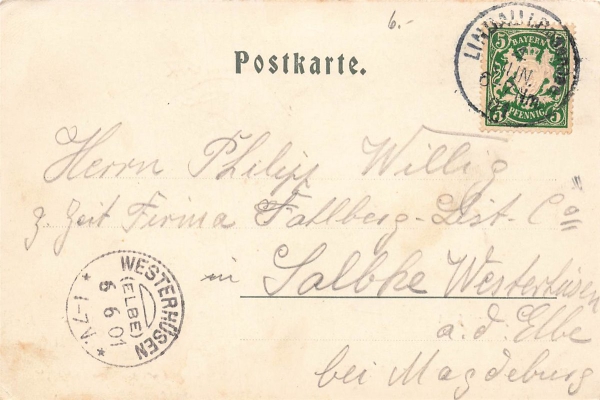 6.-
Postkarte.
5 BAYERN 5
PFENNIG
JUN.
Herrn Philipp Willig
z. Zeit Firma Fahlberg-List-Co
in Salbke Westerhüsen
a. d. Elbe
bei Magdeburg
WESTERHÜSEN
(ELBE)
6 6 01
* 1-7 N. *